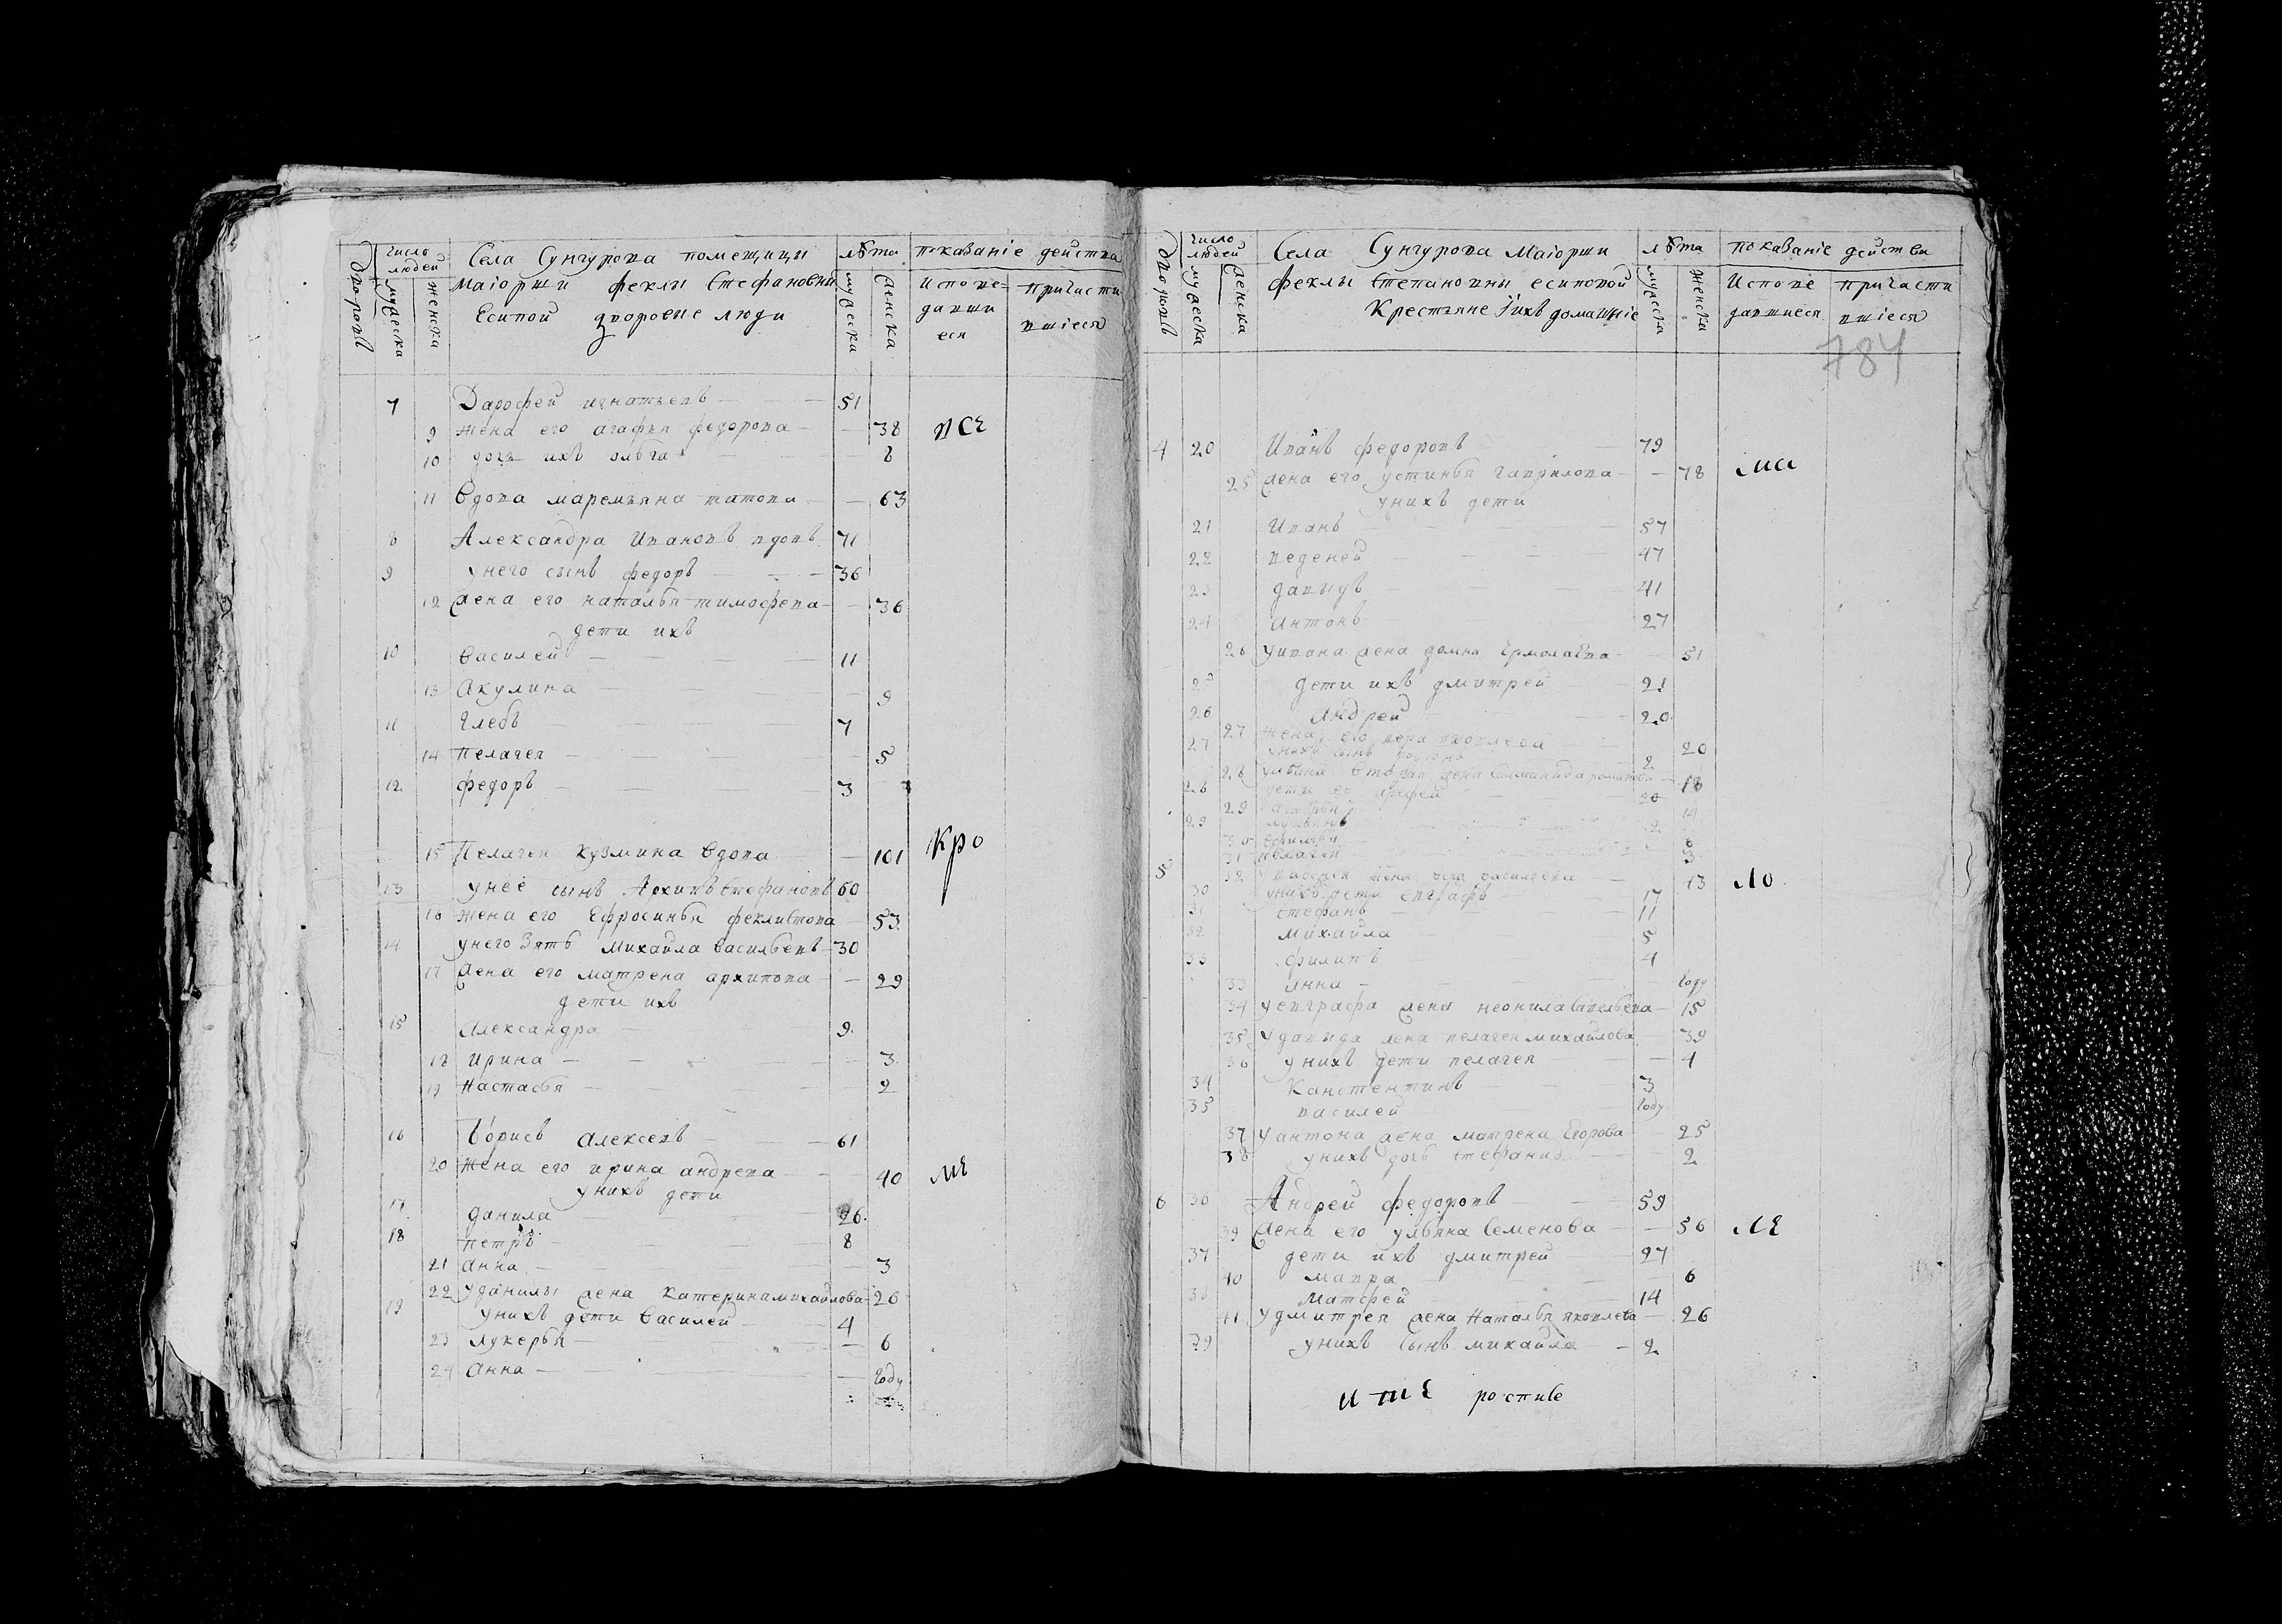 дворовъ
число людей
мужеска
женска
Села Сунгурова помещицы
Маіорши феклы Стефановны
Есипой дворовые люди
лѣта
мужеска
женска
показаніе действа
Испове=
давши
еся
причасти
вшіеся
7 Дарофей игнатьевъ 51
9 жена его агафья федорова 38 все
10 дочь ихъ ольга 8
11 вдова маремьяна титова 63
8 Александра Ивановъ вдовъ 71
9 унего сынъ федоръ 36
12 жена его наталья тимофева 36
дети ихъ
10 василей 11
13 Акулина 9
11 глебъ 7
14 пелагея 5
12 федоръ 3
15 Пелагея кузмина вдова 101 Кро
13 унее сынъ Архипъ Стефановъ 60
16 жена его Ефросинья феклистова 53
14 унего зять михайла васильевъ 30
17 жена его матрена архипова 29
дети ихъ
15 Александра 9
18 ирина 3
19 настасья 2
16 Борисъ Алексевъ 61
20 жена его ирина андрева 40 ме
унихъ дети
17 данила 26
18 петръ 8
21 анна 3
22 уданилы жена катерина михайлова 26
19 унихъ дети василей 4
23 лукерья 6
24 анна году
дворовъ
число людей
мужеска
женска
Села Сунгурова Маіорши
феклы Степановны есиповой
Крестьяне Iихъ домашніе
лѣта
мужеска
женски
показаніе действа
Испове
давшиеся
причасти
вшіеся
784
4 20 Иванъ федоровъ 79
25 жена его устинья гаврилова 78 ма
унихъ дети
21 Иванъ 57
22 веденей 47
23 давыдъ 41
24 антонъ 27
26 уивана жена домна Ермолаева 51
25 дети ихъ дмитрей 21
26 Андрей 20
27 жена его вера яковлева 20
27 унихъ сынъ 2
28 жена 18
28 дети 20
29 19
29 12
30 6
31 пелагея 3
5 32 жена васильева 43 ло
30 унихъ дети евграфъ 17
31 стефанъ 11
32 михайла 5
33 филипъ 4
33 анна году
34 уевграфа жена неонила савельева 15
35 удавыда жена пелагея михайлова 39
36 унихъ дети пелагея 4
34 Канстентинъ 3
35 василей году
37 уантона жена матрена Егорова 25
38 унихъ дочь стефанида 2
6 36 Андрей федоровъ 59
39 жена его ульяна Семенова 56 ле
37 дети ихъ дмитрей 27
40 мавра 6
38 матфей 14
41 удмитрея жена Наталья яковлева 26
39 унихъ сынъ михайла 2